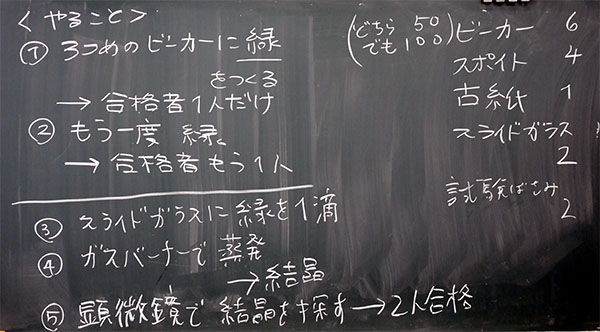 ＜やること＞
① 3つめのビーカーに緑
をつくる
→ 合格者1人だけ
② もう一度 緑、
→ 合格者もう1人
③ スライドガラスに緑を1滴
④ ガスバーナーで蒸発
→ 結晶
⑤ 顕微鏡で結晶を探す→2人合格
(どちら 50
でも 100) ビーカー 6
スポイト 4
古紙 1
スライドガラス
2
試験ばさみ
2